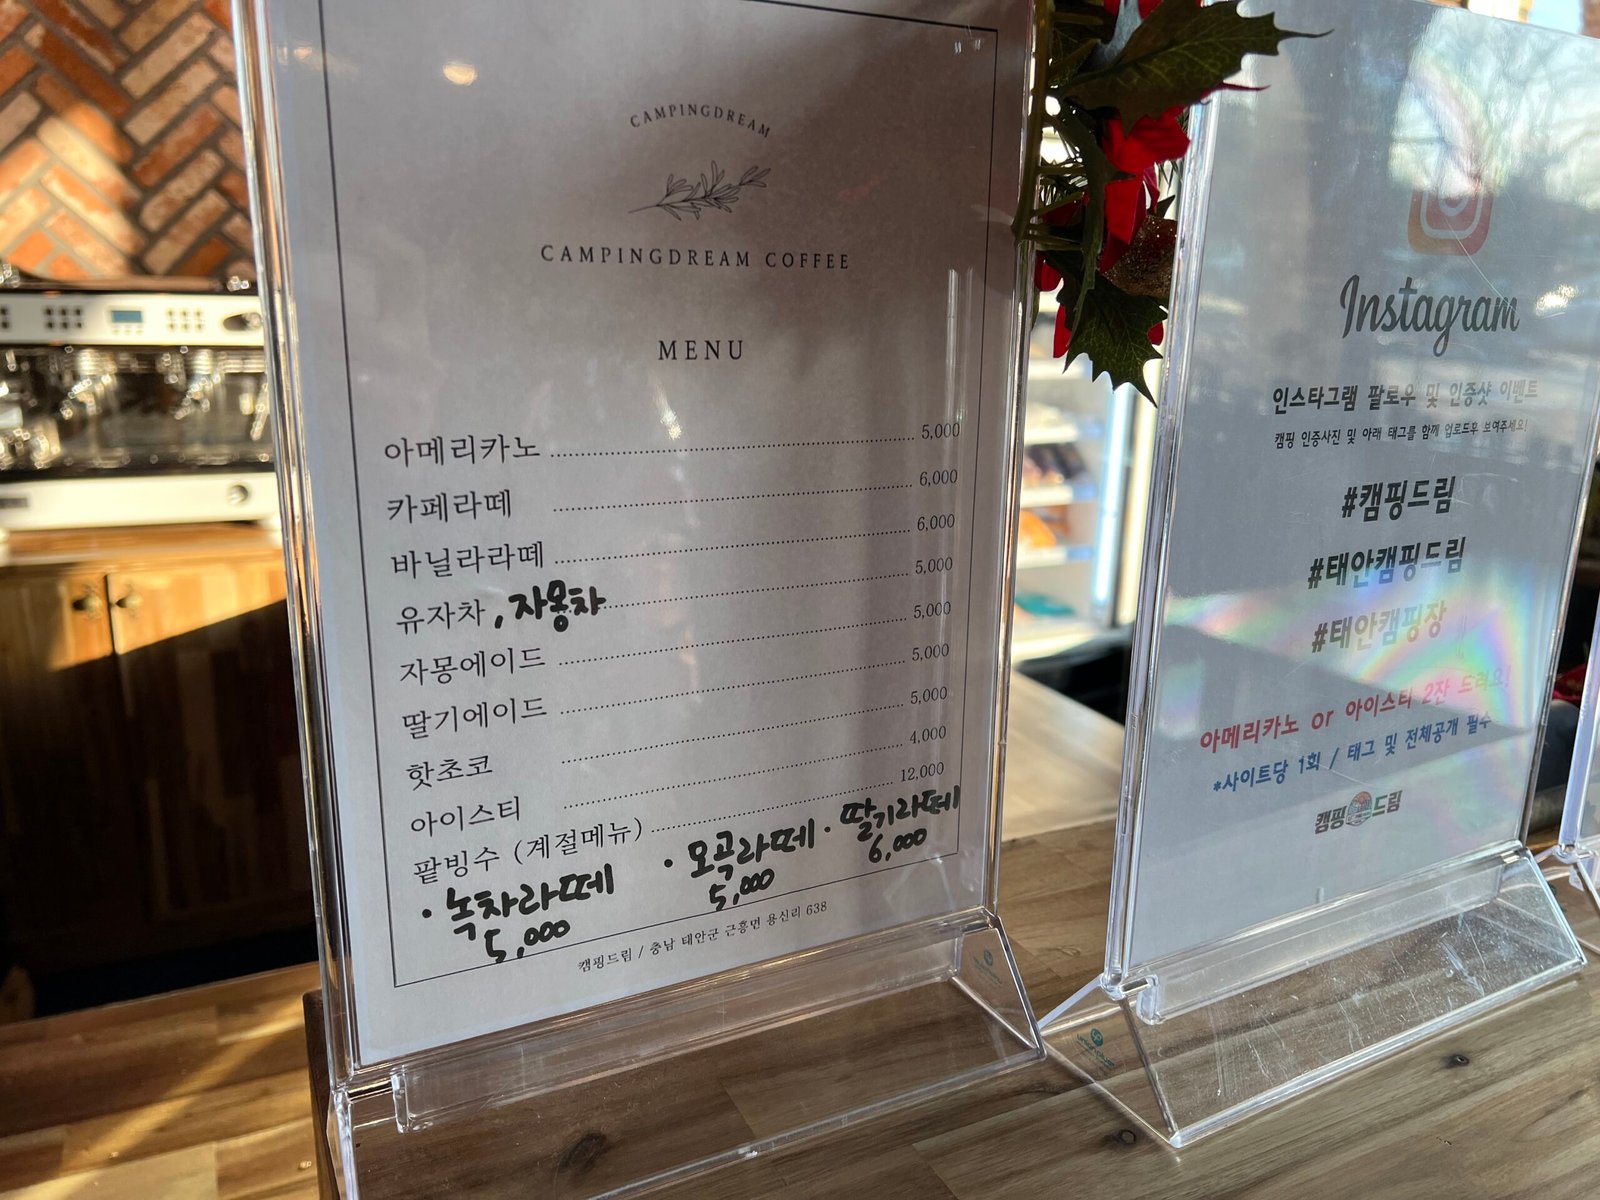 CAMPINGDREAM
CAMPINGDREAM COFFEE
MENU
아메리카노 5,000
카페라떼 6,000
바닐라라떼 6,000
유자차 , 자몽차 5,000
자몽에이드 5,000
딸기에이드 5,000
핫초코 5,000
아이스티 4,000
팥빙수 (계절메뉴) 12,000
· 녹차라떼 · 모곡라떼 · 딸기라떼
5,000 5,000 6,000
캠핑드림 / 충남 태안군 근흥면 용신리 638
Instagram
인스타그램 팔로우 및 인증샷 이벤트
캠핑 인증사진 및 아래 태그를 함께 업로드후 보여주세요!
#캠핑드림
#태안캠핑드림
#태안캠핑장
아메리카노 or 아이스티 2잔 드려요!
*사이트당 1회 / 태그 및 전체공개 필수
캠핑드림